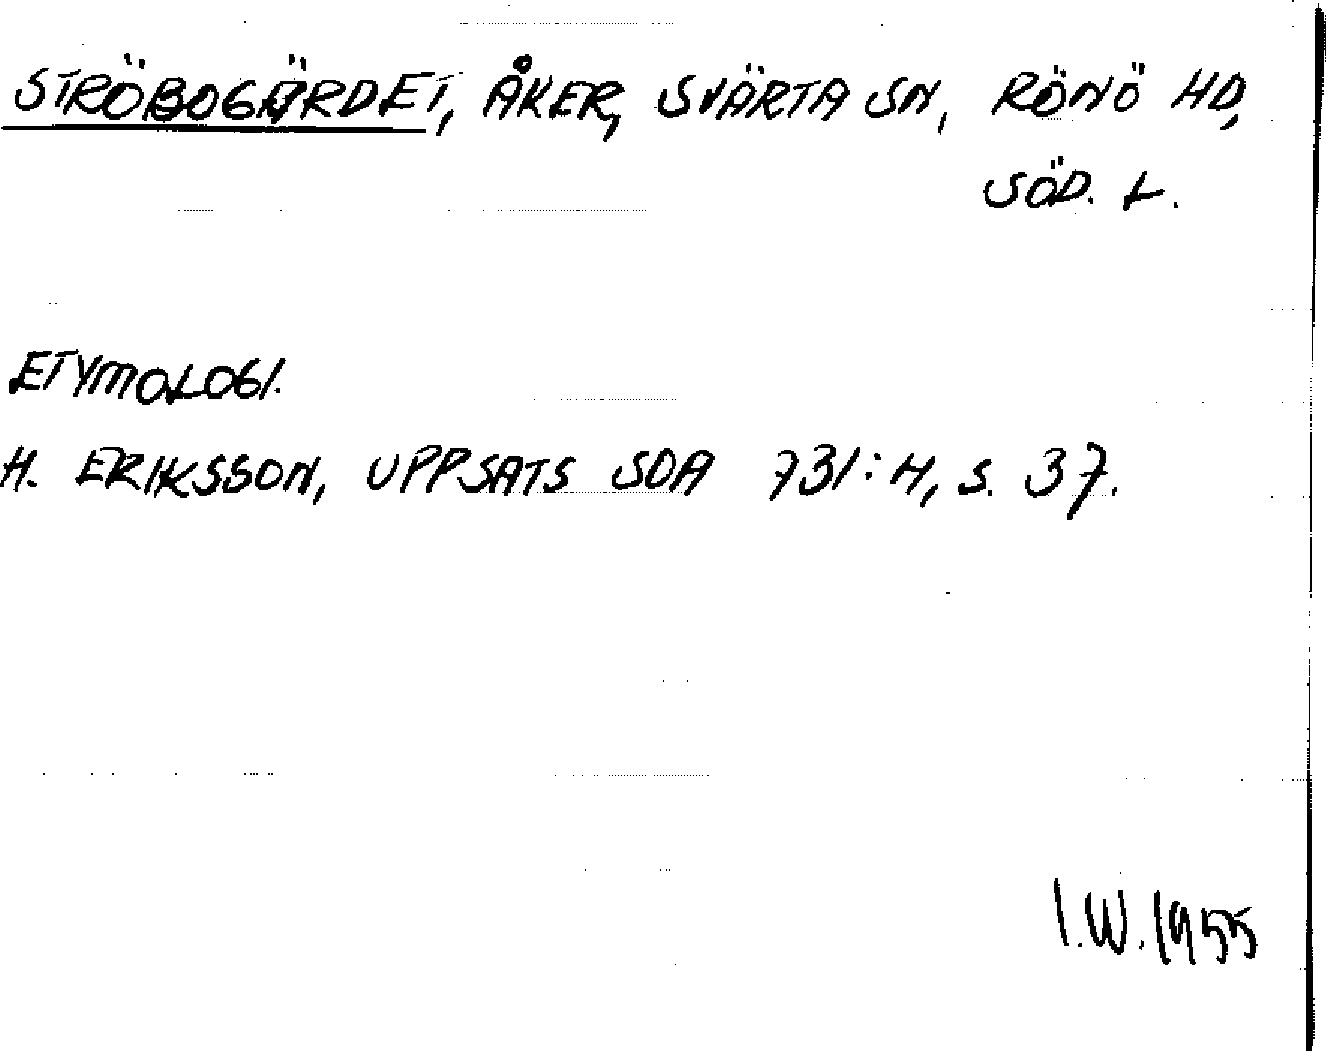 STRÖBOGÄRDET, ÅKER, SVÄRTA SN, RÖNÖ HD,
SÖD. L.
ETYMOLOGI.
H. ERIKSSON, UPPSATS SOA 731:H, S. 37.
I.W. 1955